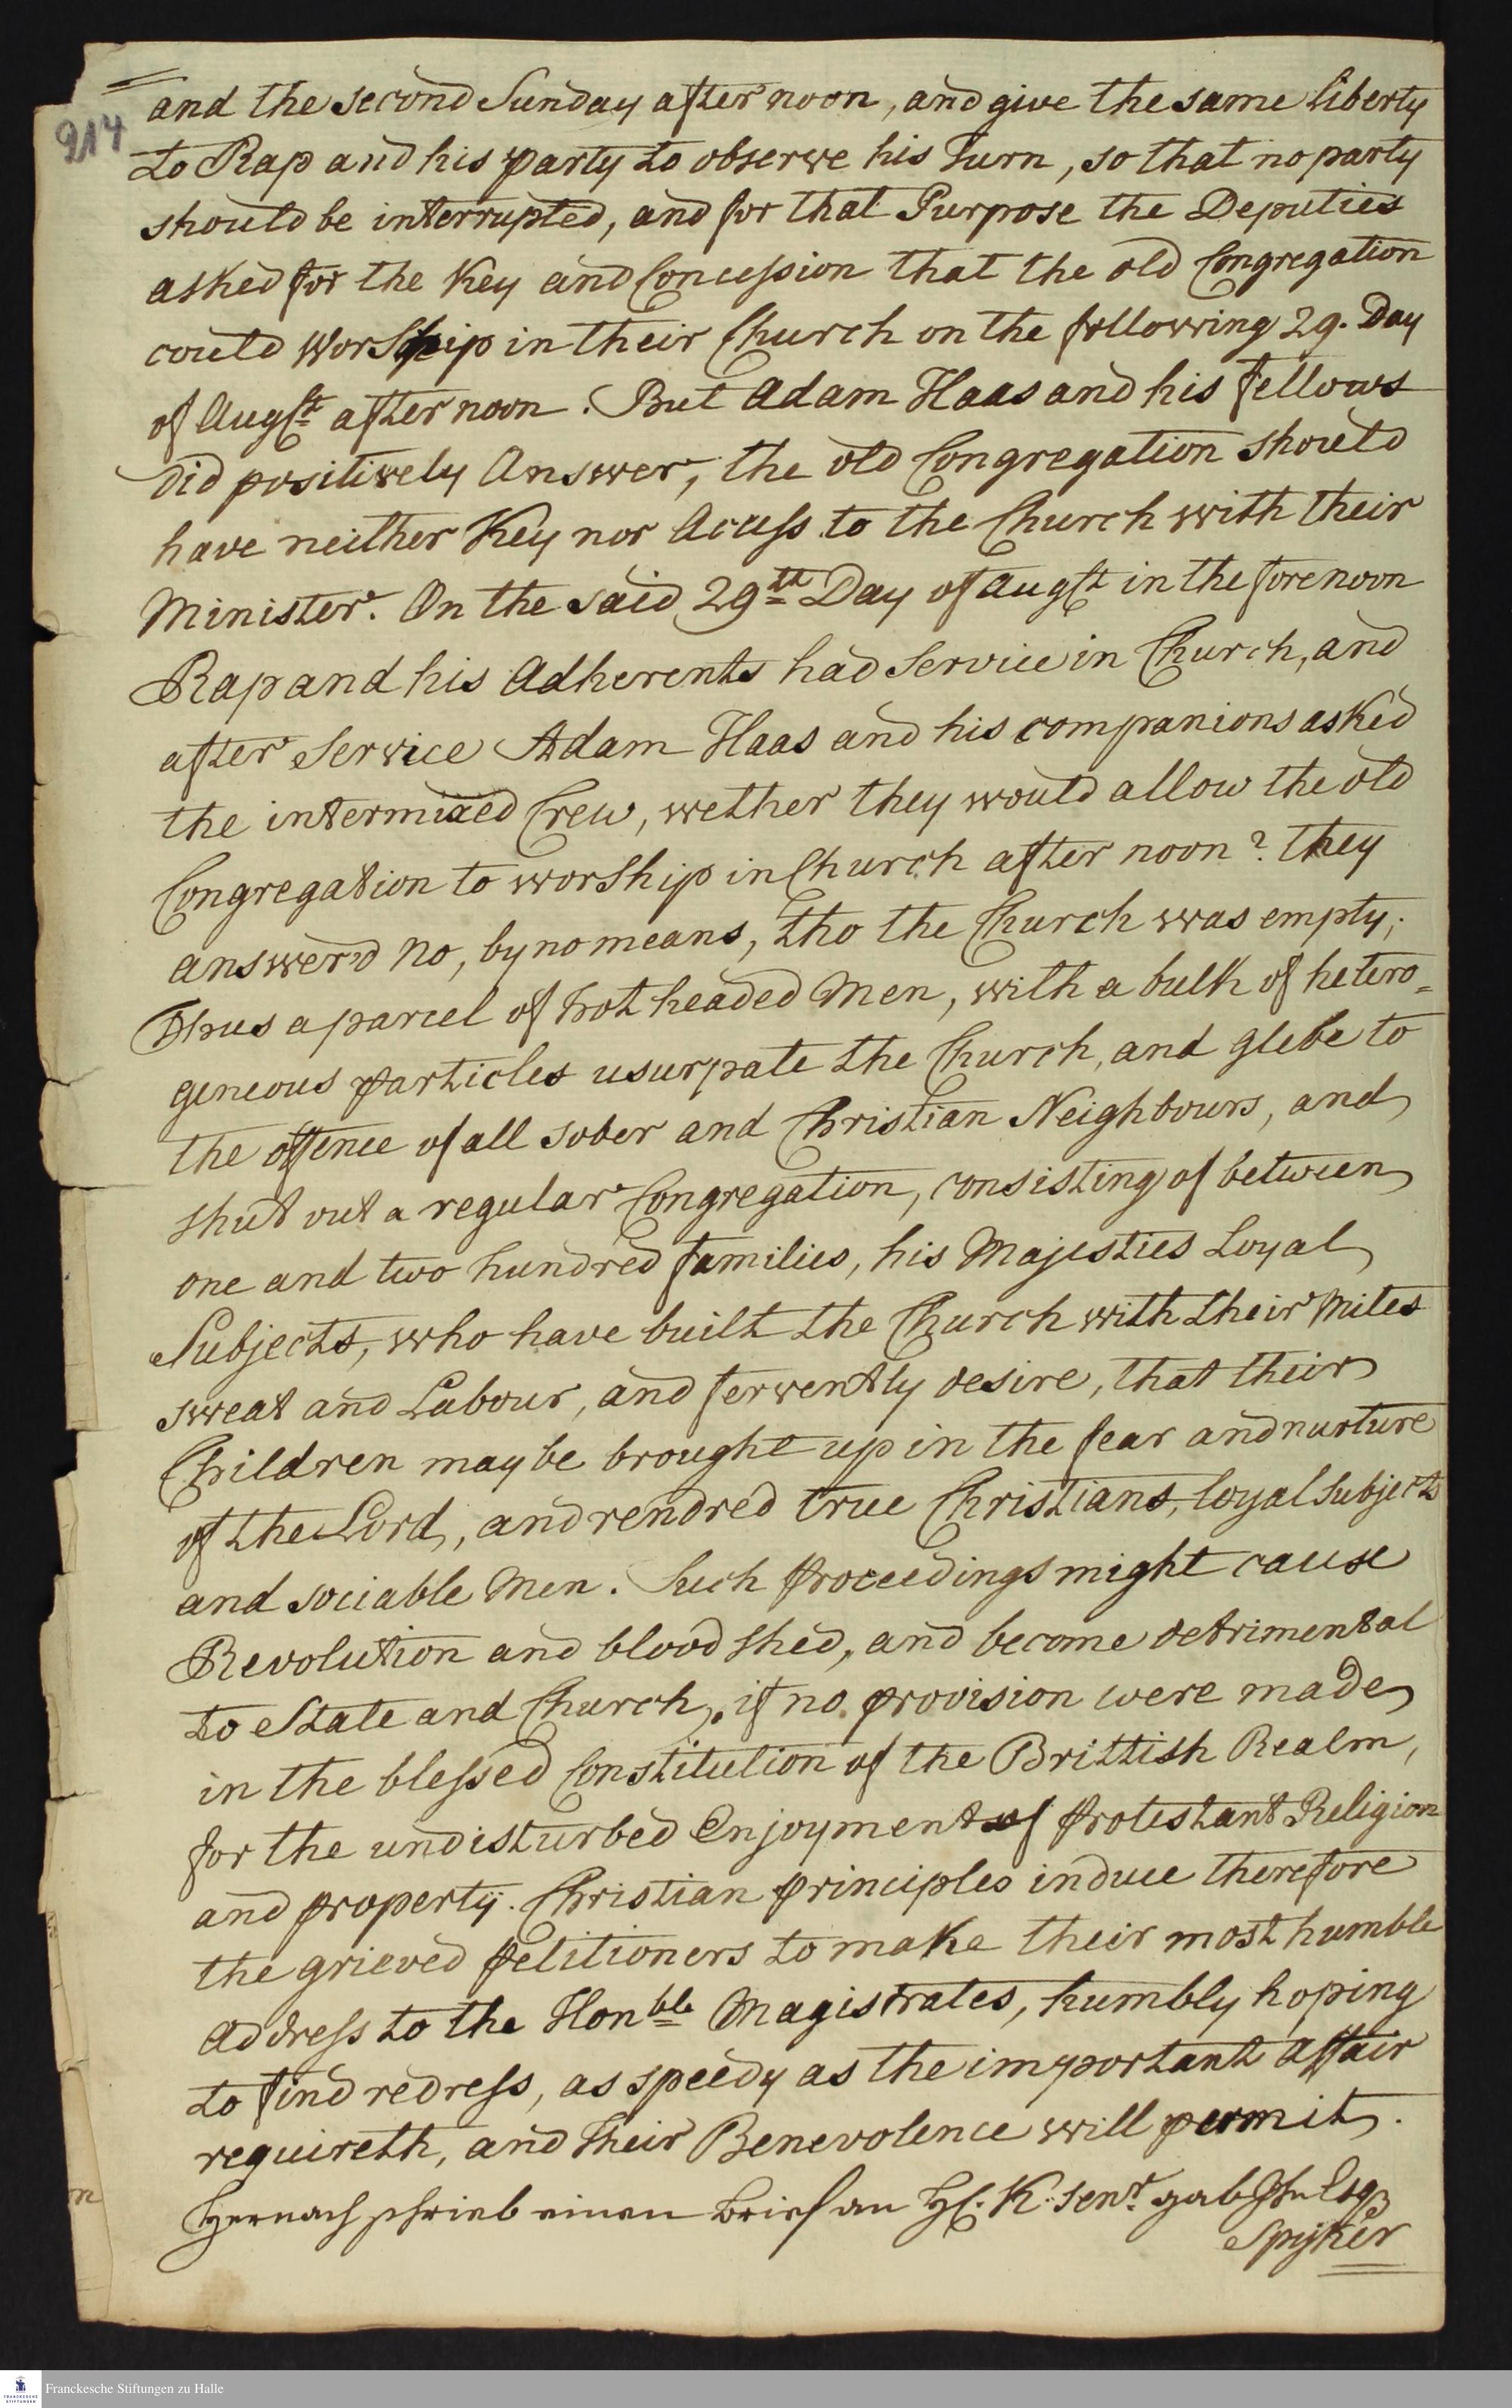 914
and the second Sunday after noon, and give the same liberty
to Rap and his party to observe his Turn, so that no party
should be interrupted, and for that Purpose the Deputies
asked for the Key and Concession that the old Congregation
could Worship in their Church on the following 29. Day
of Augst after noon. But Adam Haas and his fellows
did positively Answer, the old Congregation should
have neither Key nor Access to the Church with their
Minister. On the said 29th Day of Augst in the forenoon
Rap and his Adherents had Service in Church, and
after Service Adam Haas and his companions ask'd
the intermixed Crew, wether they would allow the old
Congregation to worship in Church after noon? they
answer'd No, by no means, tho the Church was empty;
Thus a parcel of hot headed Men, with a bulk of hetero=
geneous particles usurpate the Church, and glebe to
the offence of all sober and Christian Neighbours, and
shut out a regular Congregation, consisting of between
one and two hundred families, his Majesties Loyal
Subjects, who have built the Church with their Mites
sweat and Labour, and fervently desire, that their
Children may be brought up in the fear and nurture
of the Lord, and rendred true Christians, loyal Subjects
and sociable Men. Such proceedings might cause
Revolution and blood shed, and become detrimental
to State and Church, if no provision were made
in the blessed Constitution of the Brittish Realm,
for the undisturbed Enjoyment of Protestant Religion
and property. Christian principles induce therefore
the grieved petitioners to make their most humble
address to the Honble Magistrates, humbly hoping
to find redress, as speedy as the important affair
requireth, and their Benevolence will permit.
Hernach schrieb einen Brief an H. K. Senr. gab
Spyker
Franckesche Stiftungen zu Halle